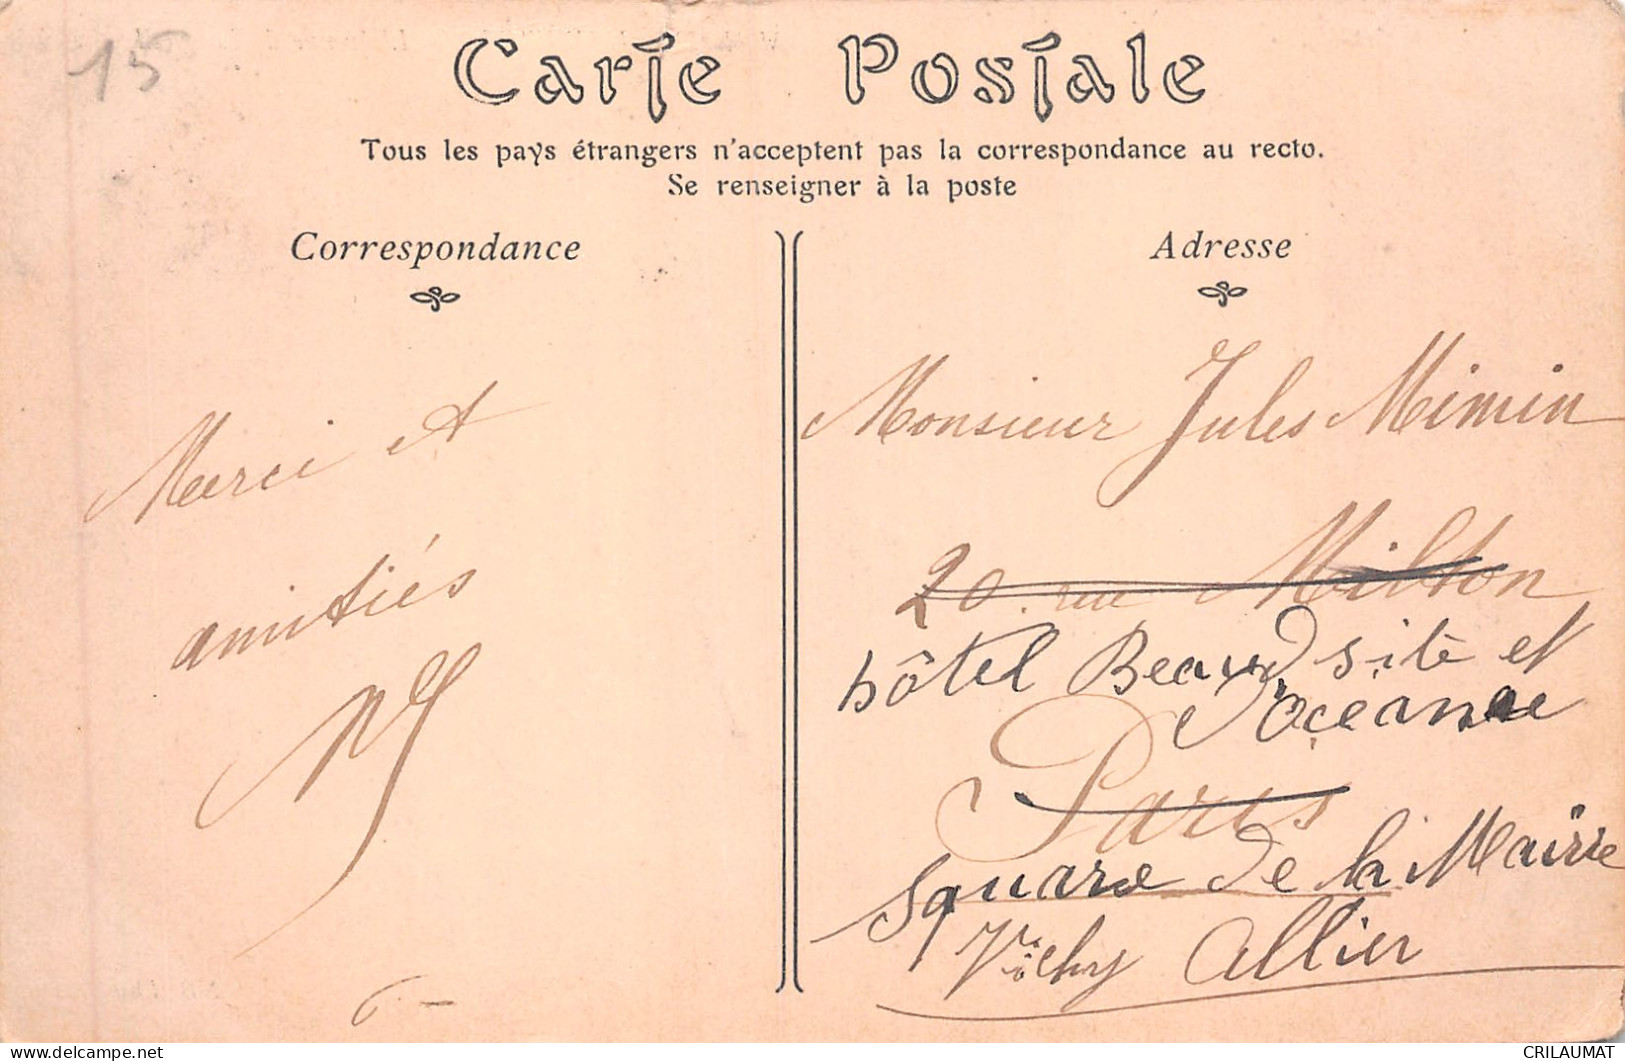 15
Carte Postale
Tous les pays étrangers n'acceptent pas la correspondance au recto.
Se renseigner à la poste
Correspondance
Adresse
Merci et
amitiés
6 -
Monsieur Jules Mimin
20. rue Milton
hôtel Beau site et
d'océanie
Paris
Square de la Mairie
Vichy Allier
CRILAUMAT